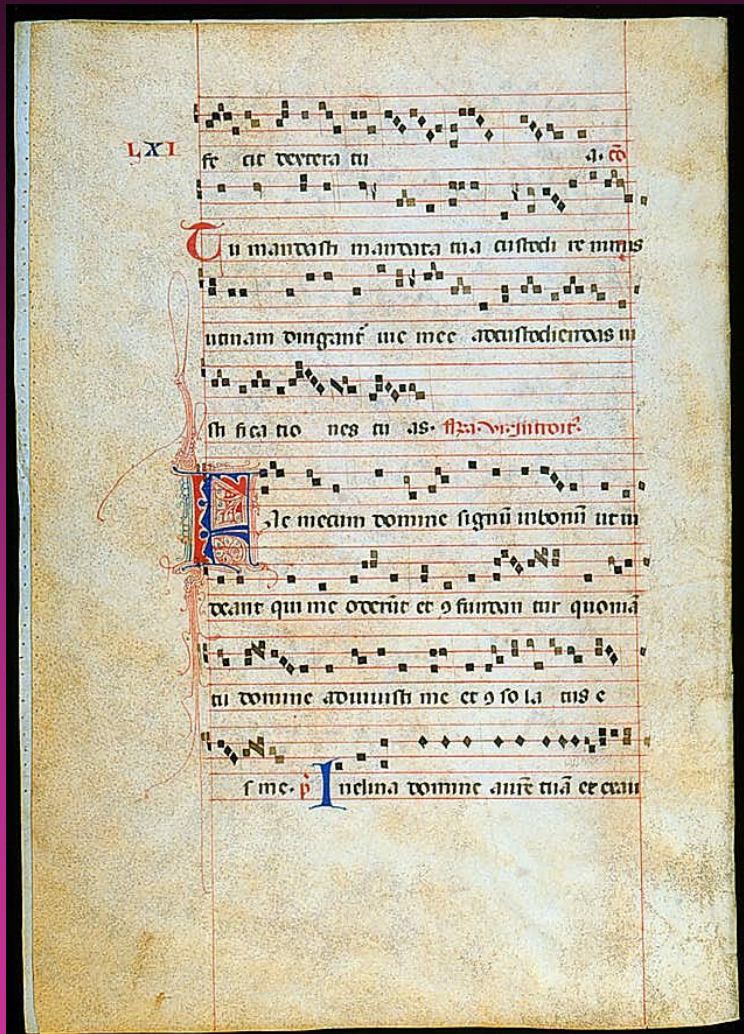 LXI
fe cit dextera tu a. cō
Tu mandasti mandata tua custodi re nimis
utinam dirigant vie mee adcustodiendas iu
sti fica tio nes tu as.
Fac mecum domine signū inbonū ut vi
deant qui me oderūt et ꝯ fundan tur quoniā
tu domine adiuuisti me et ꝯ so la tus e
s me. p̄ Inclina domine aurē tuā et exau